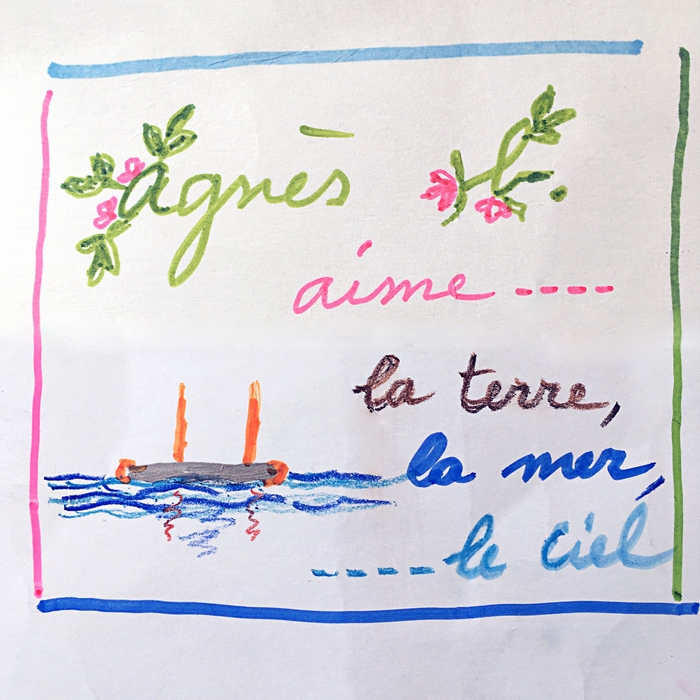 agnès l.
aime ----
la terre,
la mer,
---- le ciel